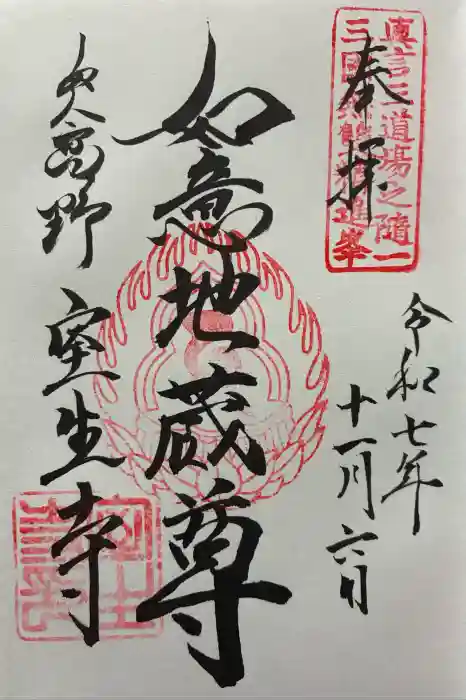 奉拝
真言三道場之随一
令和七年
十一月六日
如意地蔵尊
女人高野
室生寺